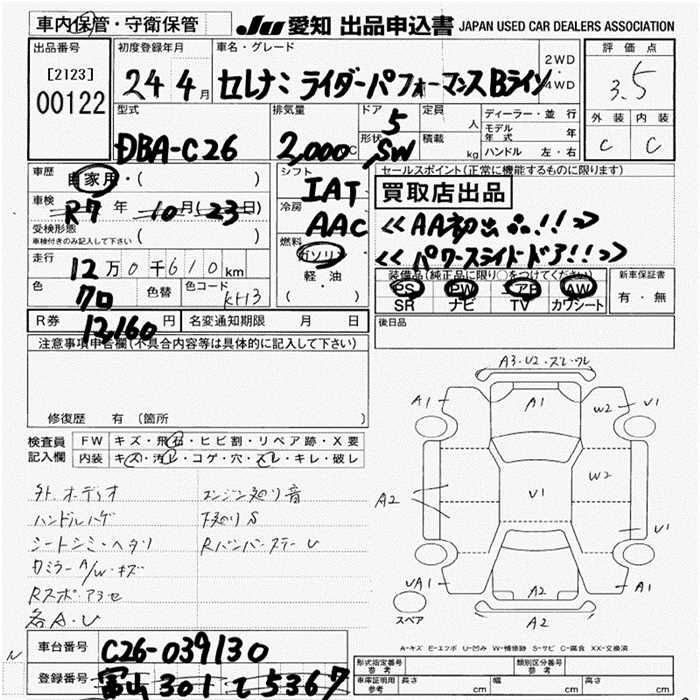 車内保管・守衛保管
JU 愛知 出品申込書 JAPAN USED CAR DEALERS ASSOCIATION
出品番号
[2123]
00122
初度登録年月
24 4月
車名・グレード
セレナ ライダーパフォーマンスBライン
2WD
・
4WD
評価点
3.5
外装 内装
C C
型式
DBA-C26
排気量
2,000c
ドア
5
形状
SW
定員
人
積載
kg
ディーラー・並行
モデル年式 年
ハンドル 左・右
車歴
自家用・( )
車検
R7年 10月(23日)
受検形態
車検付きのみ記入して下さい ( )
走行
12万0千610km
色
クロ
色替
色コード
kH3
シフト
IAT
冷房
AAC
燃料
ガソリン
軽・油
( )
セールスポイント(正常に機能するものに限ります)
買取店出品
<<AA初出品!!>>
<<パワースライドドア!!>>
装備品(純正品に限り○をつけてください)
PS PW エアB AW
SR ナビ TV カワシート
新車保証書
有・無
R券 12,160円
名変通知期限 月 日
後日品
注意事項申告欄(不具合内容等は具体的に記入して下さい)
修復歴 有 〔箇所
検査員
記入欄
FW キズ・飛石・ヒビ割・リペア跡・X要
内装 キズ・汚レ・コゲ・穴・スレ・キレ・破レ
外.オーディオ
ハンドルハゲ
シートシミ・ヘタリ
Rスポ・アラセ
各A・U
エンジン廻り音
下廻りS
RバンパーステーU
A3・U2・スレ・ワレ
A1
A1
W2
U1
A2
U1
W2
U1
UA1
A2
A1
A2
スペア
A-キズ E-エクボ U-凹み W-補修跡 S-サビ C-腐食 XX-交換済
車台番号
C26-039130
登録番号
富山 301 て 5367
N
形式指定番号
参考
類別区分番号
参考
車庫証明用
参考
長さ cm
幅 cm
高さ cm